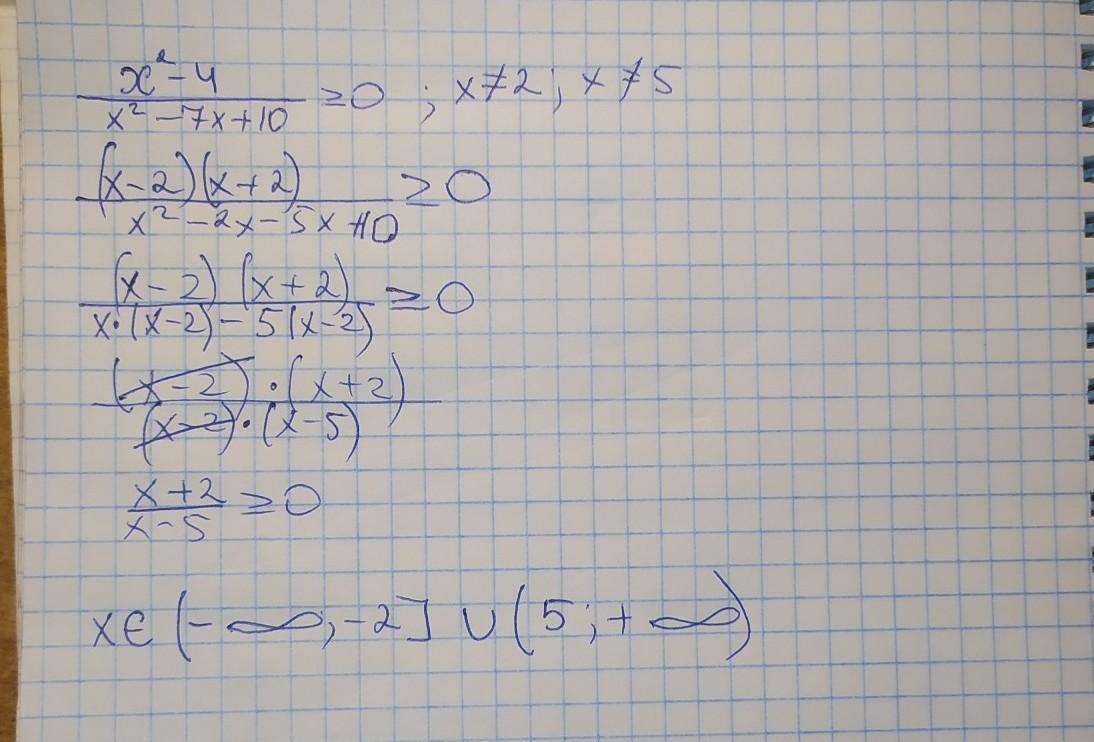 x² - 4 / x² - 7x + 10 ≥ 0 ; x ≠ 2 ; x ≠ 5
(x - 2)(x + 2) / x² - 2x - 5x + 10 ≥ 0
(x - 2) (x + 2) / x · (x - 2) - 5 (x - 2) ≥ 0
(x - 2) · (x + 2) / (x - 2) · (x - 5)
x + 2 / x - 5 ≥ 0
x ∈ (- ∞; -2] ∪ (5 ; + ∞)